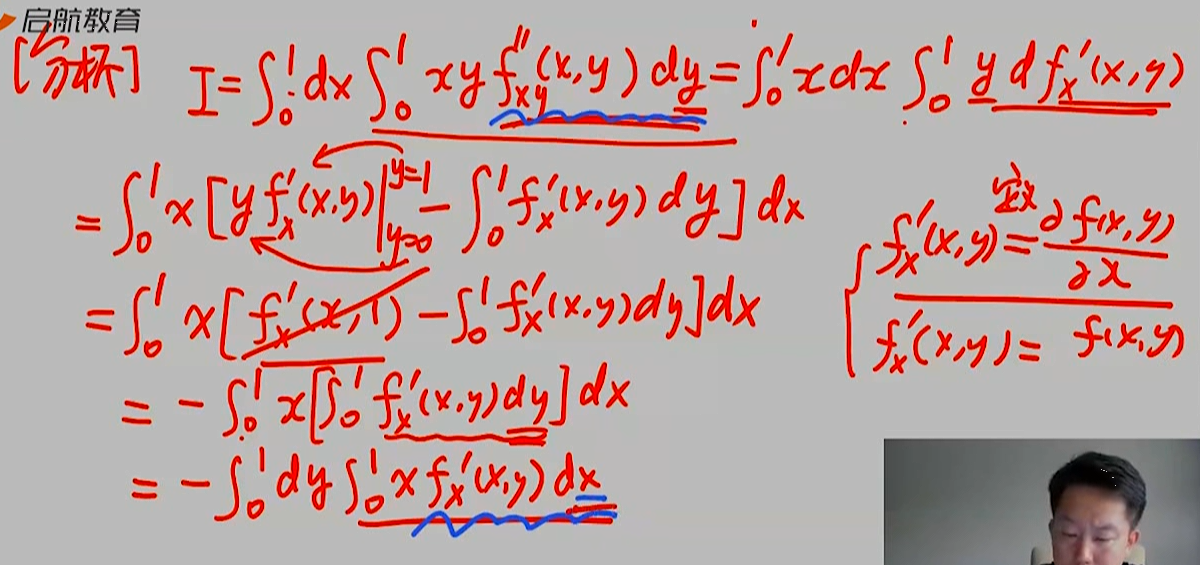 启航教育
[分析] I=∫₀¹dx∫₀¹ xy f''xy(x,y)dy=∫₀¹xdx∫₀¹ y d f'x(x,y)
=∫₀¹x[yf'x(x,y)|y=1 y=0 -∫₀¹f'x(x,y)dy]dx
=∫₀¹x[f'x(x,1)-∫₀¹f'x(x,y)dy]dx
=-∫₀¹x[∫₀¹f'x(x,y)dy]dx
=-∫₀¹dy∫₀¹xf'x(x,y)dx
f'x(x,y)=∂f(x,y)/∂x
f'x(x,y)= f(x,y)